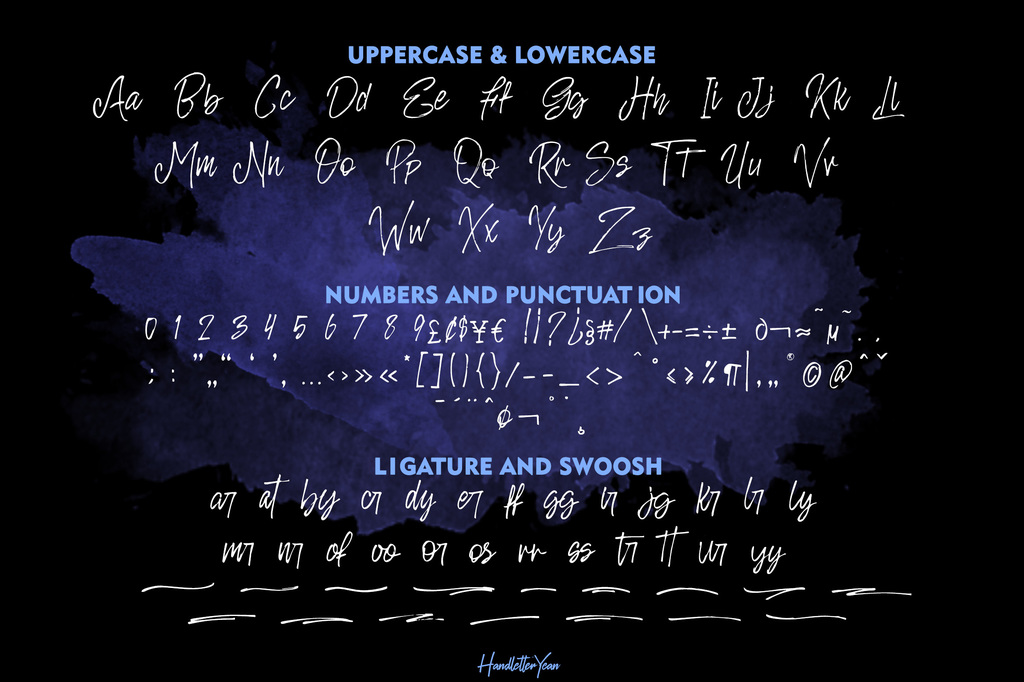 UPPERCASE & LOWERCASE
Aa Bb Cc Dd Ee Ff Gg Hh Ii Jj Kk Ll
Mm Nn Oo Pp Qq Rr Ss Tt Uu Vv
Ww Xx Yy Zz
NUMBERS AND PUNCTUATION
0 1 2 3 4 5 6 7 8 9 £ ¢ $ ¥ € ! ¡ ? ¿ § # / \ + - = ÷ ± ∂ ¬ ≈ ~ µ ~ . ,
; : ” „ “ ‘ ’ , ... ‹ › » « * [ ] ( ) { } / - - _ < > ˆ ° ≤ ≥ % ¶ | , „ ® © @ ˆ ˇ
¯ ´ ¨ ˆ ° ˙
Ø ¬ ¸
LIGATURE AND SWOOSH
ar at by cr dy er ff gg ir jg kr lr ly
mr nr of oo or os rr ss tr tt ur yy
HandletterYean